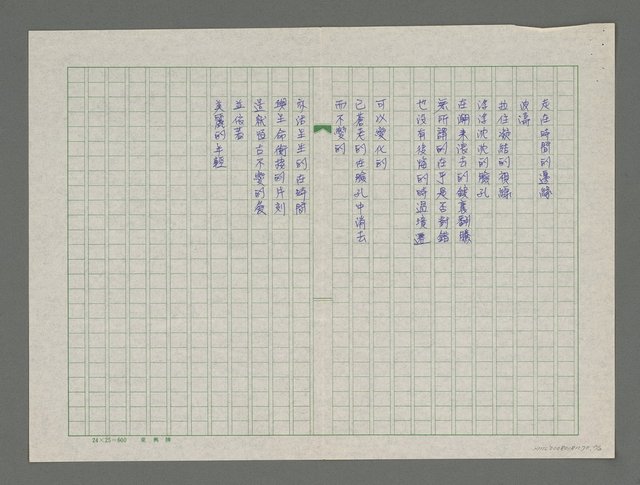 走在時間的邊緣
波濤
拉住凝結的視線
浮浮沈沈的臉孔
在潮來浪去的鏡裏翻騰
無所謂的在乎是否對錯
也沒有後悔的時過境遷
可以變化的
已蒼老的在臉孔中消去
而不變的
亦活生生的在時間
與生命銜接的片刻
造就恒古不變的愛
並依著
美麗的年輕
24×25=600